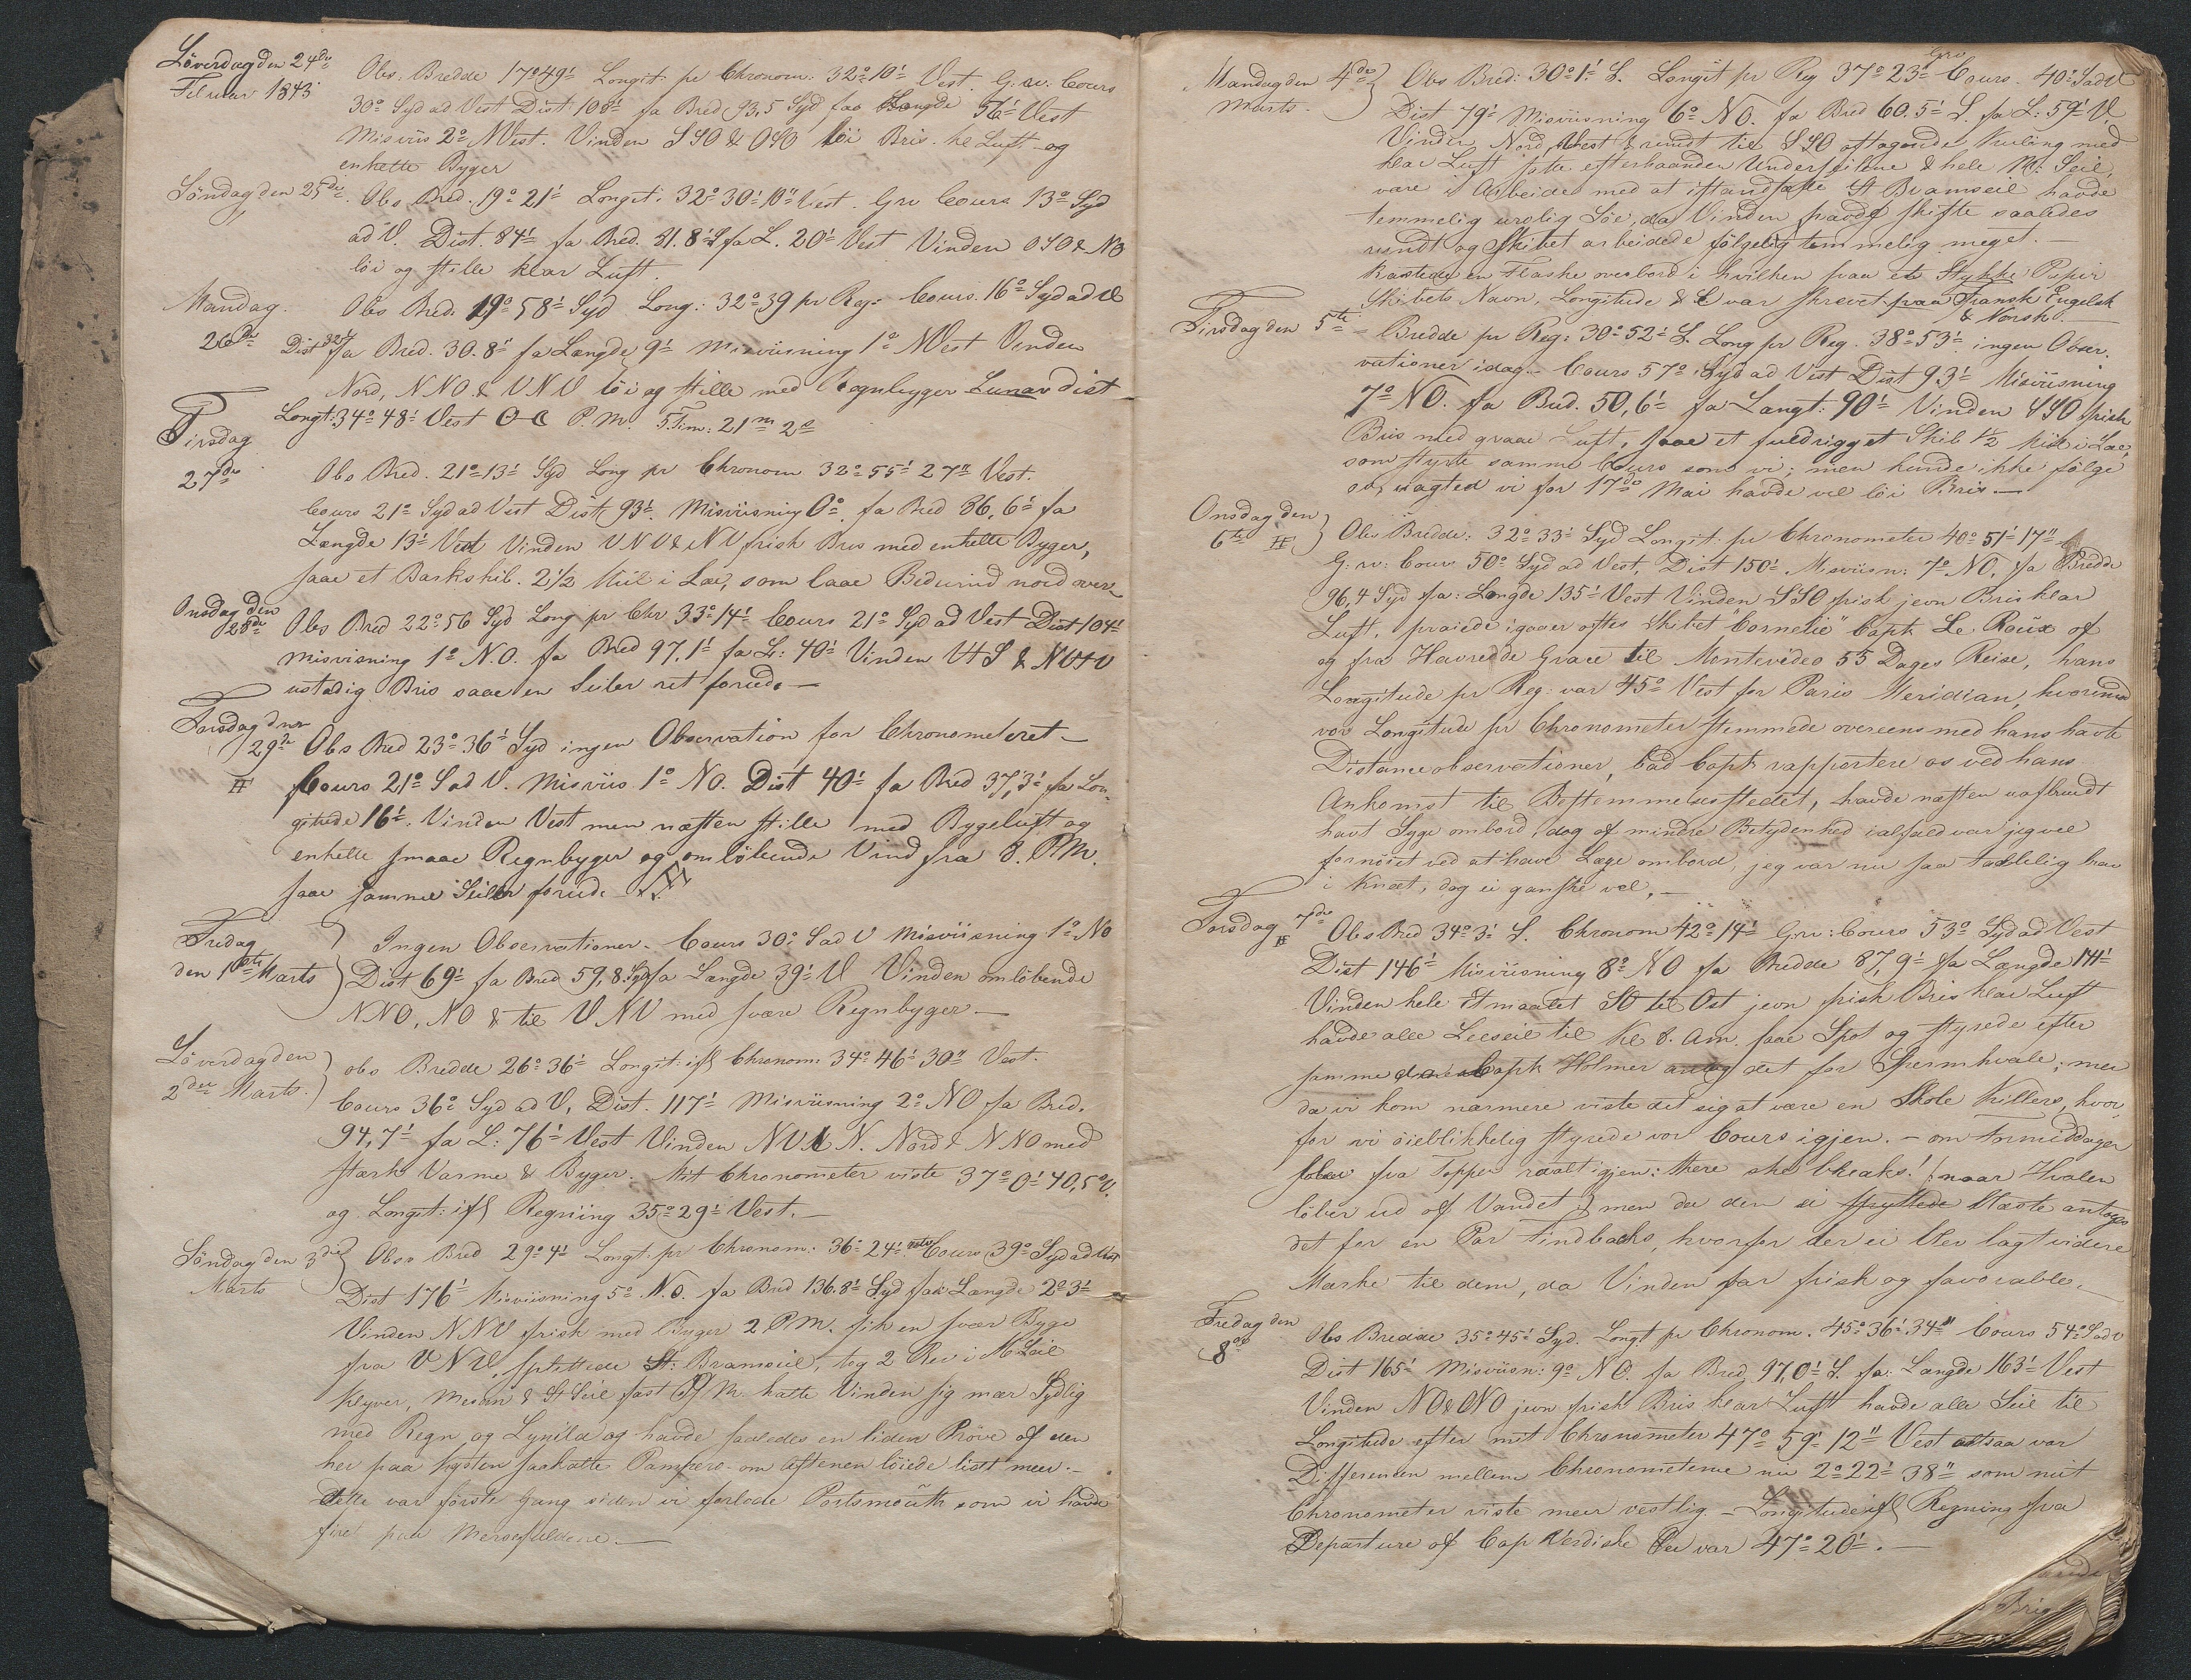 Löverdag den 24de
Februar 1843
Obs. Bredde 17°49' Longit: pr Chronom: 32°10' Vest. G: rv: Cours
30° Syd ad Vest Dist: 108' fa Bred 93,5 Syd faa Længde 56' Vest
Misviis 2° NVest. Vinden SSO & OSO löi Bris. kl Luft og
enkelte Byger
Söndag den 25de
Obs Bred. 19° 21' Longit: 32° 30' 10" Vest. Grv Cours 13° Syd
ad V. Dist. 84' fa Bred. 81.8' S fa L. 20' Vest Vinden OSO & NO
löi og stille klar Luft.
Mandag
26de
Obs Bred. 19° 58' Syd Long: 32° 39 pr Reg: Cours. 16° Syd ad V
Dist 32' fa Bred. 30.8' fa Længde 9' Misviisning 1° NVest Vinden
Nord, NNO & VNV löi og stille med Regnbyger Lunar dist
Longt: 34° 48' Vest P. M. 5Tim: 21m 2s
Tirsdag
27de
Obs Bred. 21° 13' Syd Long pr Chronom 32° 55' 27" Vest.
Cours 21° Syd ad Vest Dist 93'. Misviisning 0° fa Bred 86,6' fa
Længde 13' Vest Vinden VNV & NV frisk Bris med enkelte Byger,
saae et Barkskib. 2 1/2 Miil i Læ, som laae Bidevind nord over
Onsdag den
28de
Obs Bred 22° 56 Syd Long pr Chr 33° 14' Cours 21° Syd ad Vest Dist 104'
Misvisning 1° N.O. fa Bred 97,1' fa L: 40' Vinden VtS & NVtV
ustadig Bris saae en Seiler ret forud. —
Torsdag den
29de
Obs Bred 23° 36' Syd ingen Observation for Chronometeret —
Cours 21° S ad V. Misviis 1° NO. Dist 40' fa Bred 37,3' fa Lon-
gitude 16'. Vinden Vest men næsten stille med Bygeluft og
enkelte smaae Regnbyger og omlöbende Vind fra 8. P.M.
saae samme Seiler forud.
Fredag
den 1ste Marts
Ingen Observationer. Cours 30° S ad V Misviisning 1° NO
Dist 69' fa Bred 59,8 Syd fa Længde 39' V Vinden omlöbende
NNO, NO & til VNV med svære Regnbyger —
Löverdag den
2den Marts.
obs Bredde 26° 36' Longit: ifl Chronom: 34° 46' 30" Vest.
Cours 36° Syd ad V. Dist. 117' Misviisning 2° NO fa Bred.
94,7' fa L: 76' Vest Vinden NVtN. Nord & NNO med
stærk Varme & Byger. Mit Chronometer viste 37° 0' 40,5" V.
og Longit: ifl Regning 35° 29' Vest. —
Söndag den 3die
Marts
Obs Bred 29° 4' Longt: pr Chronom: 36° 24' Cours 39° Syd ad Vest
Dist 176' Misviisning 5° N.O. fa Bred 136.8' Syd fa Længde 2° 3'
Vinden NNV frisk med Byger 2 P.M. fik en svær Byge
fra VNV, splittede St: Bramseil, tog 2 Rev i M Seil
Klyver, Mesan & St Seil fast M. hatte Vinden sig mær Sydlig
med Regn og Lynild og havde saaledes en liden Pröve af den
her paa kysten saakalte Pampero. om Aftenen löiede lidt meer. —
dette var förste Gang siden vi forlode Portsmouth som vi havde
fire paa Mersefaldene. —
Mandag den 4de
Marts.
Obs Bred: 30° 1' S. Longit pr Reg 37° 23' Grv Cours. 40° S ad V
Dist 79' Misviisning 6° NO. fa Bred 60.5' S. fa L: 59' V.
Vinden Nord, Vest & rundt til SSO aftagende Kuling med
klar Luft satte efterhaanden Underseilene & hele M: Seil,
vare i Arbeide med at istandsætte St Bramseil havde
temmelig urolig Söe, da Vinden havde skifte saaledes
rundt og Skibet arbeidede fölgelig temmelig meget. —
Kastede en Flaske overbord i hvilken paa et Stykke Papir
Skibets Navn, Longitude & L var skrevet paa Fransk Engelsk
& Norsk. —
Tirsdag den 5te
Bredde pr Reg: 30° 52' S. Long pr Reg. 38° 53' ingen Obser-
vationer idag. Cours 57° Syd ad Vest Dist 93' Misviisning
7° NO. fa Bred. 50,6' fa Længt: 90' Vinden SSO frisk
Bris med graae Luft, saae et fuldrigget Skib 1/2 Miil i Læ,
som styrte samme Cours som vi; men kunde ikke fölge
os, uagted vi for 17de Mai havde vel löi Bris —
Onsdag den
6te
Obs Bredde: 32° 33' Syd Longit: pr Chronometer 40° 51' 17"
G: rv: Cours 50° Syd ad Vest, Dist 150' Misviisn: 7° NO, fa Bredde
96,4 Syd fa: Længde 135' Vest Vinden SSO frisk jevn Bris klar
Luft, praiede igaar aftes Skibet "Cornelie" Capt. Le Roux af
og fra Havredde Grace til Montevideo 55 Dages Reise, hans
Longitude pr Reg: var 45° Vest for Paris Meridian, hvorimod
vor Longitude pr Chronometer stemmede overeens med hans havte
Distanceobservationer, bad Capt. rapportere os ved hans
Ankomst til Bestemmelsesstedet, havde næsten uafbrudt
havt Syge ombord, dog af mindre Betydenhed ialfald var jeg vel
fornöiet ved at have Læge ombord, jeg var nu saa taalelig
i Knæt, dog ei ganske vel. —
Torsdag 7de
Obs Bred 34° 3' S. Chronom 42° 14' Grv: Cours 53° Syd ad Vest
Dist 146' Misviisning 8° NO fa Bredde 87,9' fa Længde 141'
Vinden hele etmaalet SO til Ost jevn frisk Bris klar Luft
havde alle Leeseil til Kl 8. Am. saae Spot og styrede efter
samme Capt Holmer antog det for Spermhvale; men
da vi kom nærmere viste det sig at være en Skole Killers, hvor-
for vi öieblikkelig styrede vor Cours igjen. — om Formiddagen
blev fra Toppen raabt igjen: there she breaks! (naar Hvalen
löber ud af Vandet) men da den ei spyttede Næste antoges
det for en Par Findbacks, hvorfor der ei blev lagt videre
Mærke til dem, da Vinden var frisk og favorable. —
Fredag den
8de
Obs Bredde 35° 45' Syd. Longt pr Chronom. 45° 36' 34" Cours 54° S ad V
Dist 165' Misviisn: 9° NO. fa Bred 97,0' S. fa: Længde 163' Vest
Vinden NO & ONO jevn frisk Bris klar Luft havde alle Seil til
Longitude efter mit Chronometer 47° 59' 12" Vest altsaa var
Differensen mellem Chronometerne nu 2° 22' 38" som mit
Chronometer viste meer vestlig. — Longitude ifl Regning fra
Departure af Cap Verdiske Öer var 47° 20'. —